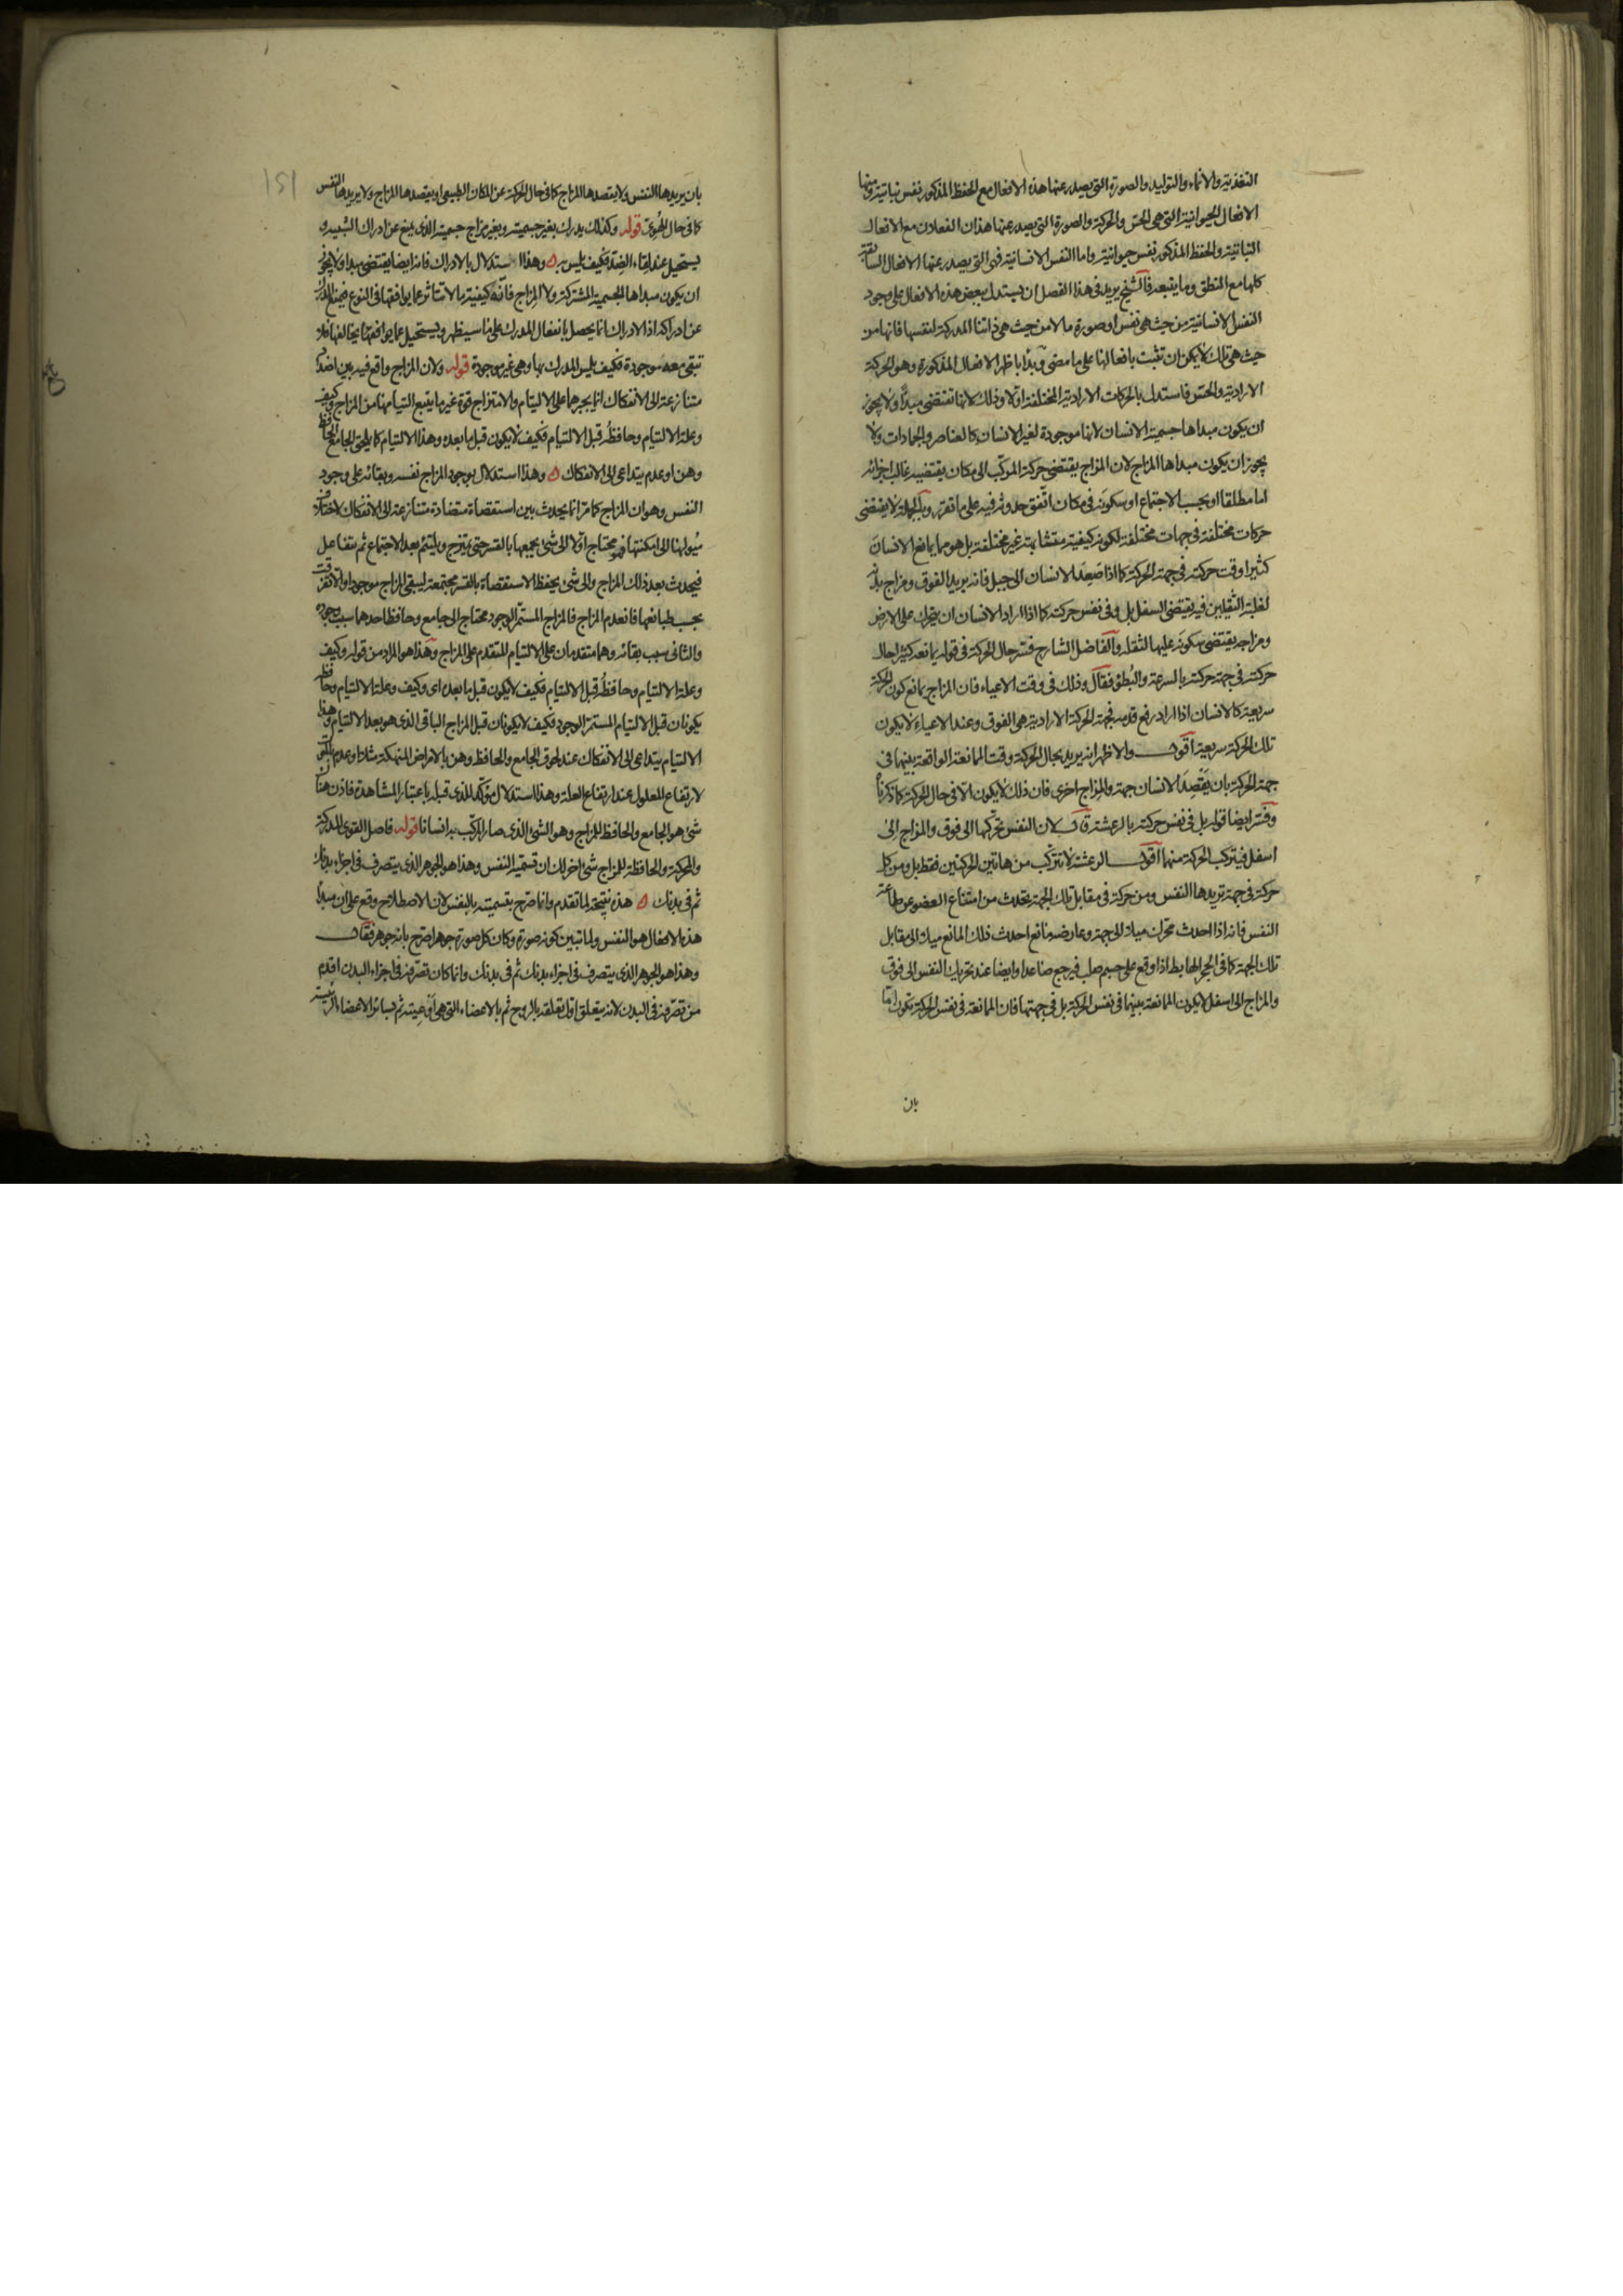 التغذية والانماء والتوليد والصورة التى يصدر عنها هذه الافعال مع الحفظ المذكور نفس نباتية ومنها
الافعال الحيوانية التى هى الحس والحركة والصورة التى يصدر عنها هذان الفعلان مع الافعال
النباتية والحفظ المذكور نفس حيوانية واما النفس الانسانية فهى التى يصدر عنها الافعال السابقة
كلها مع النطق وما يتبعه فالشيخ يريد فى هذا الفصل ان يستدل ببعض هذه الافعال على وجود
النفس الانسانية من حيث هى نفس او صورة ما لا من حيث هى ذاتنا المدركة لنفسها فانها من
حيث هى تلك لا يمكن ان تثبت بافعالنا على ما مضى وبدأ باظهر الافعال المذكورة وهو الحركة
الارادية والحس فاستدل بالحركات الارادية المختلفة اولا وذلك لانها تقتضى مبدأ ولا يجوز
ان يكون مبداها جسمية الانسان لانها موجودة لغير الانسان كالعناصر والجمادات ولا
يجوز ان يكون مبداها المزاج لان المزاج يقتضى حركة المركب الى مكان يقتضيه غالب اجزائه
اما مطلقا او بحسب الاجتماع او سكونه فى مكان اتفق حدوثه فيه على ما تقرر وبالجملة لا يقتضى
حركات مختلفة فى جهات مختلفة لكونه كيفية متشابهة غير مختلفة بل هو مما يمانع الانسان
كثيرا وقت حركته فى جهة الحركة كما اذا صعد الانسان الى جبل فانه يريد الفوق ومزاج بدنه
لغلبة الثقلين فيه يقتضى السفل بل وفى نفس حركته كما اذا اراد الانسان ان يتحرك على الارض
ومزاجه يقتضى سكونه عليها لثقله والفاضل الشارح فسر حال الحركة فى قوله يمانعه كثيرا حال
حركته فى جهة حركته بالسرعة والبطؤ فقال وذلك فى وقت الاعياء فان المزاج يمانع كون الحركة
سريعة كالانسان اذا اراد رفع قدمه فجهة الحركة الارادية هى الفوق وعند الاعياء لا يكون
تلك الحركة سريعة اقول والاظهر انه يريد بحال الحركة وقت الممانعة الواقعة بينهما فى
جهة الحركة بان يقصد الانسان جهة والمزاج اخرى فان ذلك لا يكون الا فى حال الحركة كما ذكرناه
وفسر ايضا قوله بل فى نفس حركته بالرعشة قال لان النفس تحركها الى فوق والمزاج الى
اسفل فيتركب الحركة منهما اقول الرعشة لا تتركب من هاتين الحركتين فقط بل ومن كل
حركة فى جهة تريدها النفس ومن حركة فى مقابل تلك الجهة تحدث من امتناع العضو عن طاعة
النفس فانه اذا احدث محرك ميلا الى جهة وعارضه مانع احدث ذلك المانع ميلا الى مقابل
تلك الجهة كما فى الحجر الهابط اذا وقع على جسم صلب فيرجع صاعدا وايضا عند تحريك النفس الى فوق
والمزاج الى اسفل لا يكون الممانعة بينهما فى نفس الحركة بل فى جهتها فان الممانعة فى نفس الحركة تكون اما
بان
بان يريدها النفس ولا يقصدها المزاج كما فى حال الحركة عن المكان الطبيعى او يقصدها المزاج ولا يريدها النفس
كما فى حال الهوى قوله وكذلك يدرك بغير جسمية وبغير مزاج جسميته الذى يمنع عن ادراك الشبيه و
يستحيل عند لقاء الضد فكيف يلمس به وهذا استدلال بالادراك فانه ايضا يقتضى مبدا ولا يجوز
ان يكون مبداها الجسمية المشتركة ولا المزاج فانه كيفية ما لا تتاثر عما يوافقها فى النوع فيمنع المدرك
عن ادراكه اذ الادراك انما يحصل بانفعال المدرك على ما سيظهر ويستحيل عما يخالفها فلا
تبقى معه موجودة فكيف يلمس المدرك بها وهى غير موجودة قوله ولان المزاج واقع فيه بين اضداد
متنازعة الى الانفكاك انما يجبرها على الالتيام والامتزاج قوة غير ما يتبع التيامها من المزاج وكيف
وعلة الالتيام وحافظه قبل الالتيام فكيف لا يكون قبل ما بعده وهذا الالتيام كلما يلحق الجامع الحافظ
وهن او عدم يتداعى الى الانفكاك وهذا استدلال بوجود المزاج نفسه وبقائه على وجود
النفس وهو ان المزاج كما مر انما يحدث بين استقصاة متضادة متنازعة الى الانفكاك لاختلاف
ميولها الى امكنتها فهو محتاج اولا الى شى يجمعها بالقسر حتى يمتزج ويلتئم بعد الاجتماع ثم يتفاعل
فيحدث بعد ذلك المزاج والى شئ يحفظ الاستقصاة بالقسر مجتمعة ليبقى المزاج موجودا والا تفرقت
بحسب طبائعها فانعدم المزاج فالمزاج المستمر الوجود محتاج الى جامع وحافظ احدهما سبب وجوده
والثانى سبب بقائه وهما متقدمان على الالتيام المتقدم على المزاج وهذا هو المراد من قوله وكيف
وعلة الالتيام وحافظه قبل الالتيام فكيف لا يكون قبل ما بعده اى وكيف وعلة الالتيام وحافظه
يكونان قبل الالتيام المستمر الوجود فكيف لا يكونان قبل المزاج الباقى الذى هو بعد الالتيام وهذا
الالتيام يتداعى الى الانفكاك عند لحوق الجامع والحافظ وهن بالامراض المنهكة مثلا او عدم
لارتفاع المعلول عند ارتفاع العلة وهذا استدلال مؤكد للذى قبله باعتبار المشاهدة فاذن هنا
شئ هو الجامع والحافظ للمزاج وهو الشئ الذى صار المركب به انسانا قوله فاصل القوى المدركة
والمحركة والحافظة للمزاج شئ اخر لك ان تسميه النفس وهذا هو الجوهر الذى يتصرف فى اجزاء بدنك
ثم فى بدنك هذه نتيجة لما تقدم وانما صرح بتسميته بالنفس لان الاصطلاح وقع على ان مبدأ
هذه الافعال هو النفس ولما تبين كونه صورة وكان كل صورة جوهرا صرح بانه جوهر فقال
وهذا هو الجوهر الذى يتصرف فى اجزاء بدنك ثم فى بدنك وانما كان تصرفه فى اجزاء البدن اقدم
من تصرفه فى البدن لانه يتعلق اول تعلقه بالروح ثم بالاعضاء التى هى اوعيته ثم بسائر الاعضاء الرئيسة